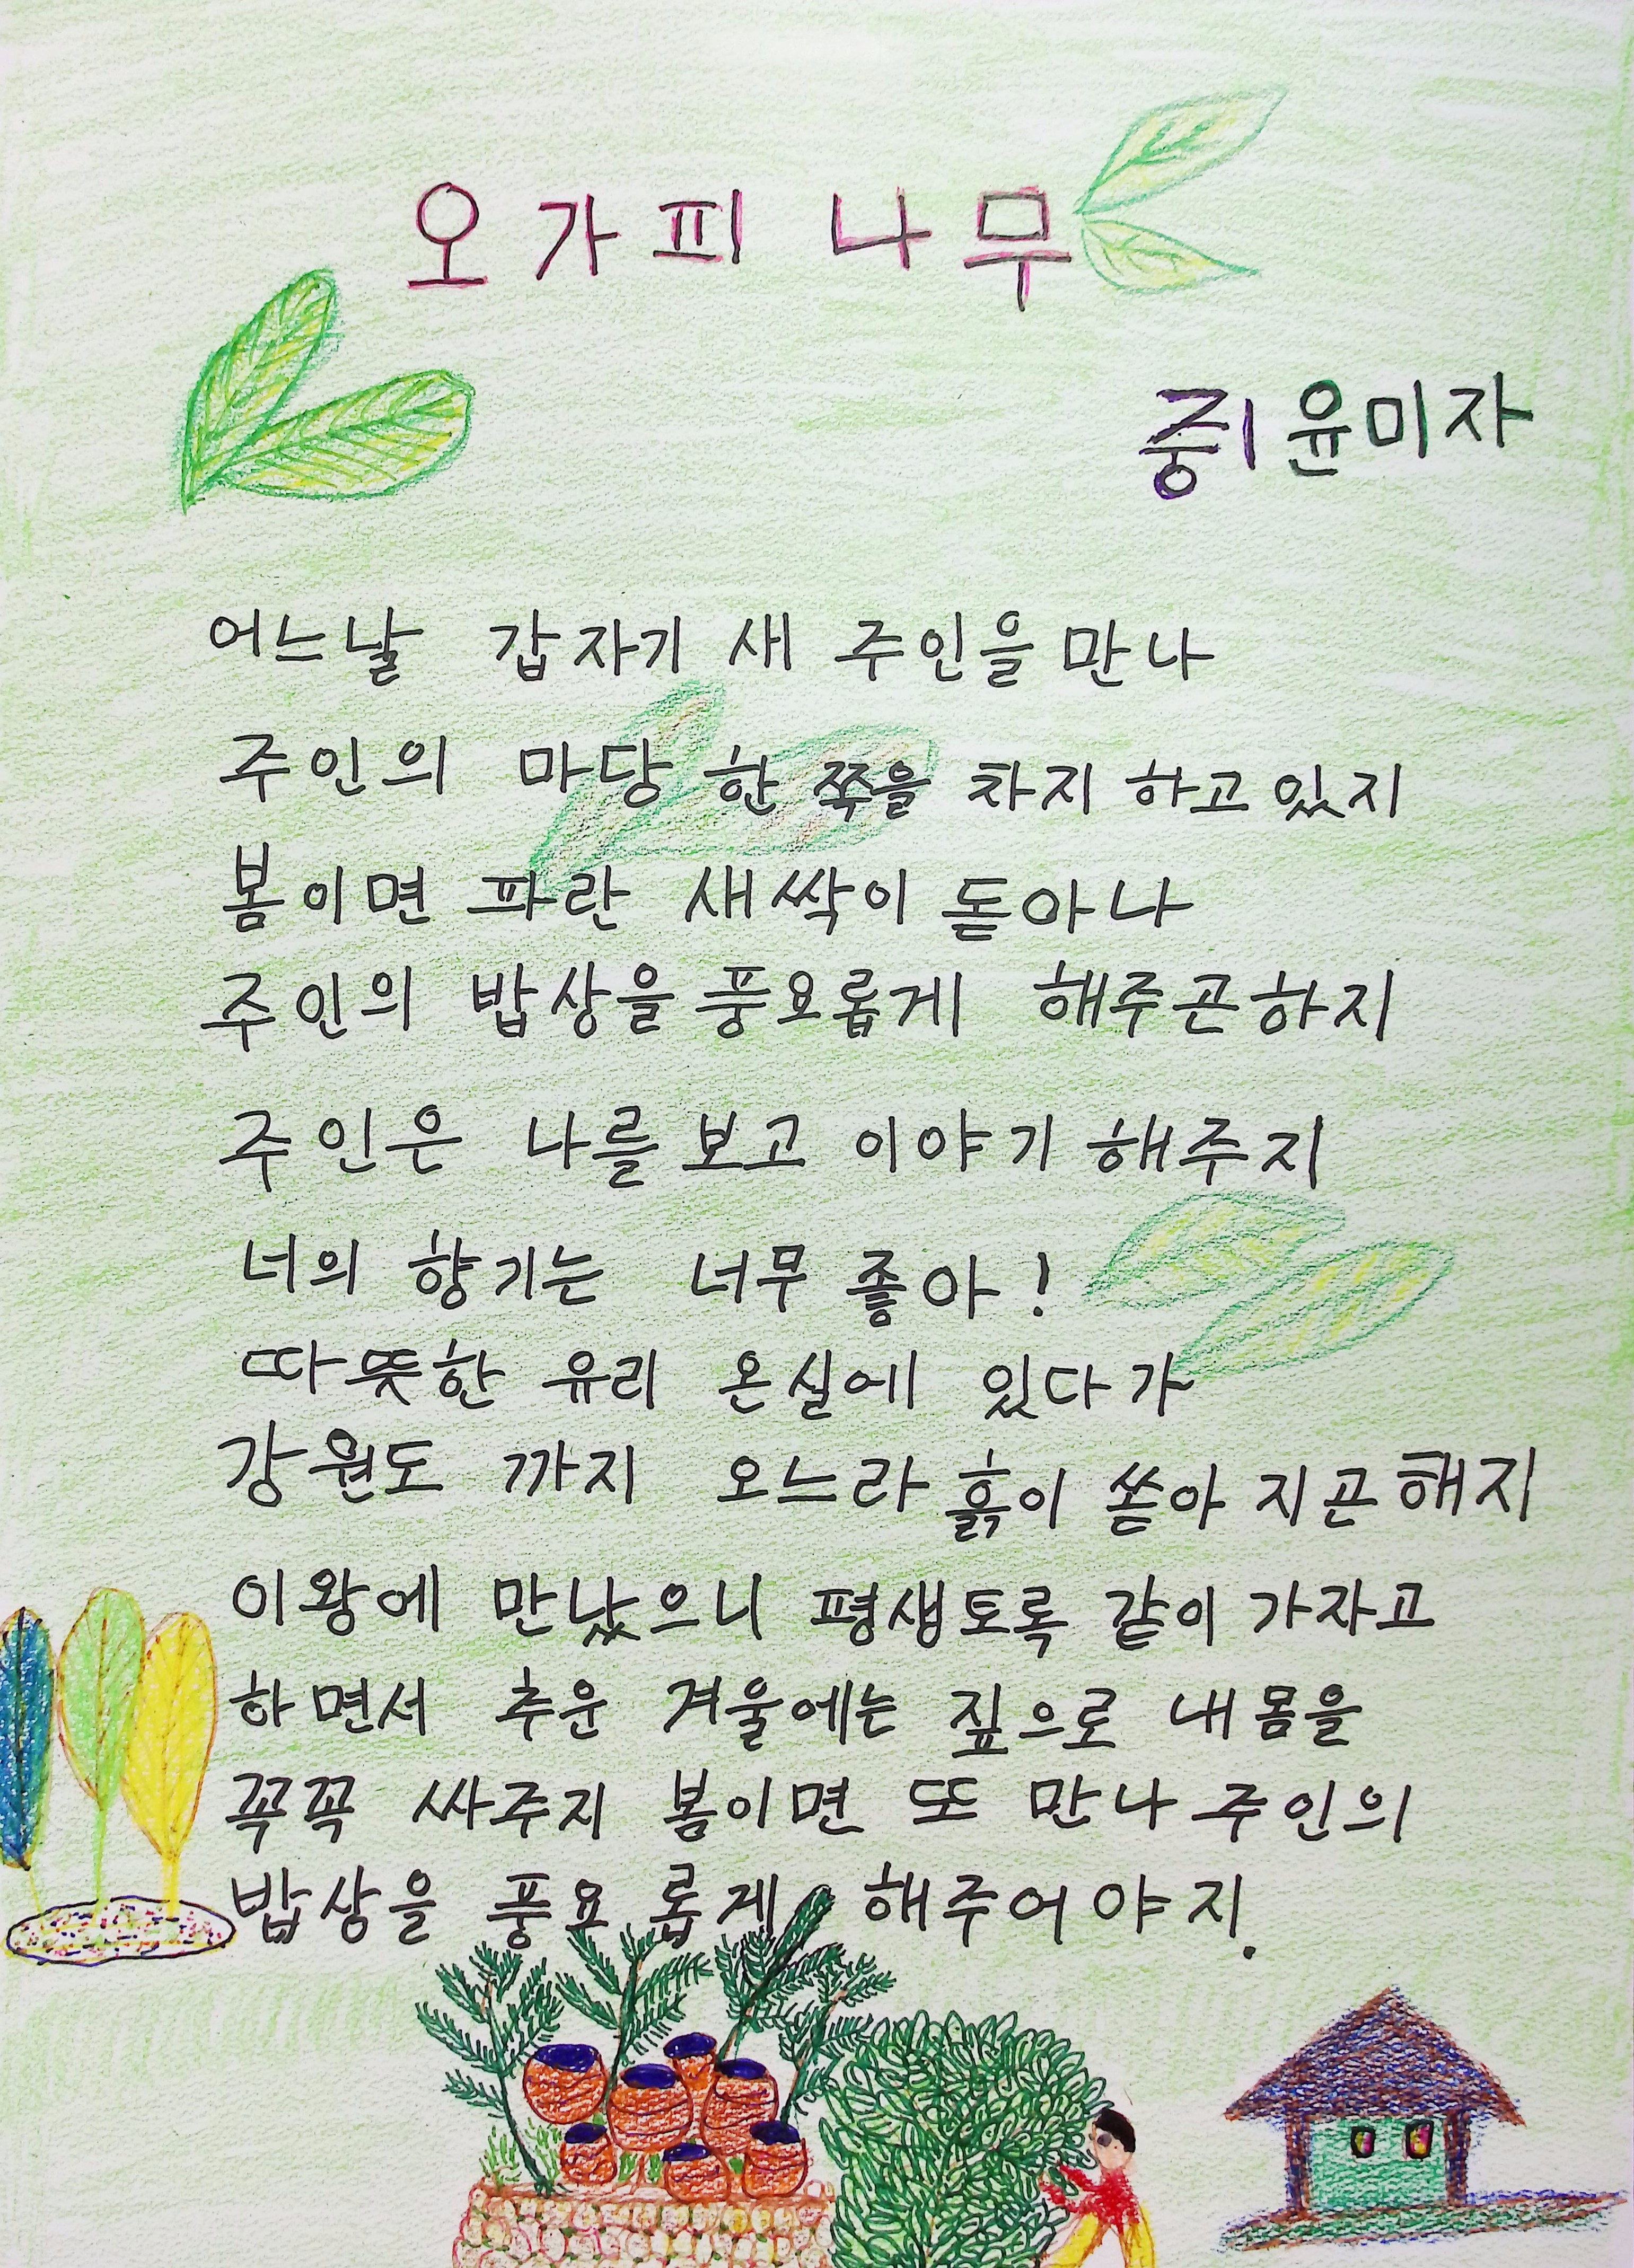 오가피 나무
중1 윤미자
어느날 갑자기 새 주인을 만나
주인의 마당 한 쪽을 차지 하고 있지
봄이면 파란 새싹이 돋아나
주인의 밥상을 풍요롭게 해주곤하지
주인은 나를 보고 이야기 해주지
너의 향기는 너무 좋아!
따뜻한 유리 온실에 있다가
강원도 까지 오느라 흙이 쏟아 지곤해지
이왕에 만났으니 평생토록 같이 가자고
하면서 추운 겨울에는 짚으로 내몸을
꼭꼭 싸주지 봄이면 또 만나 주인의
밥상을 풍요롭게 해주어야지.